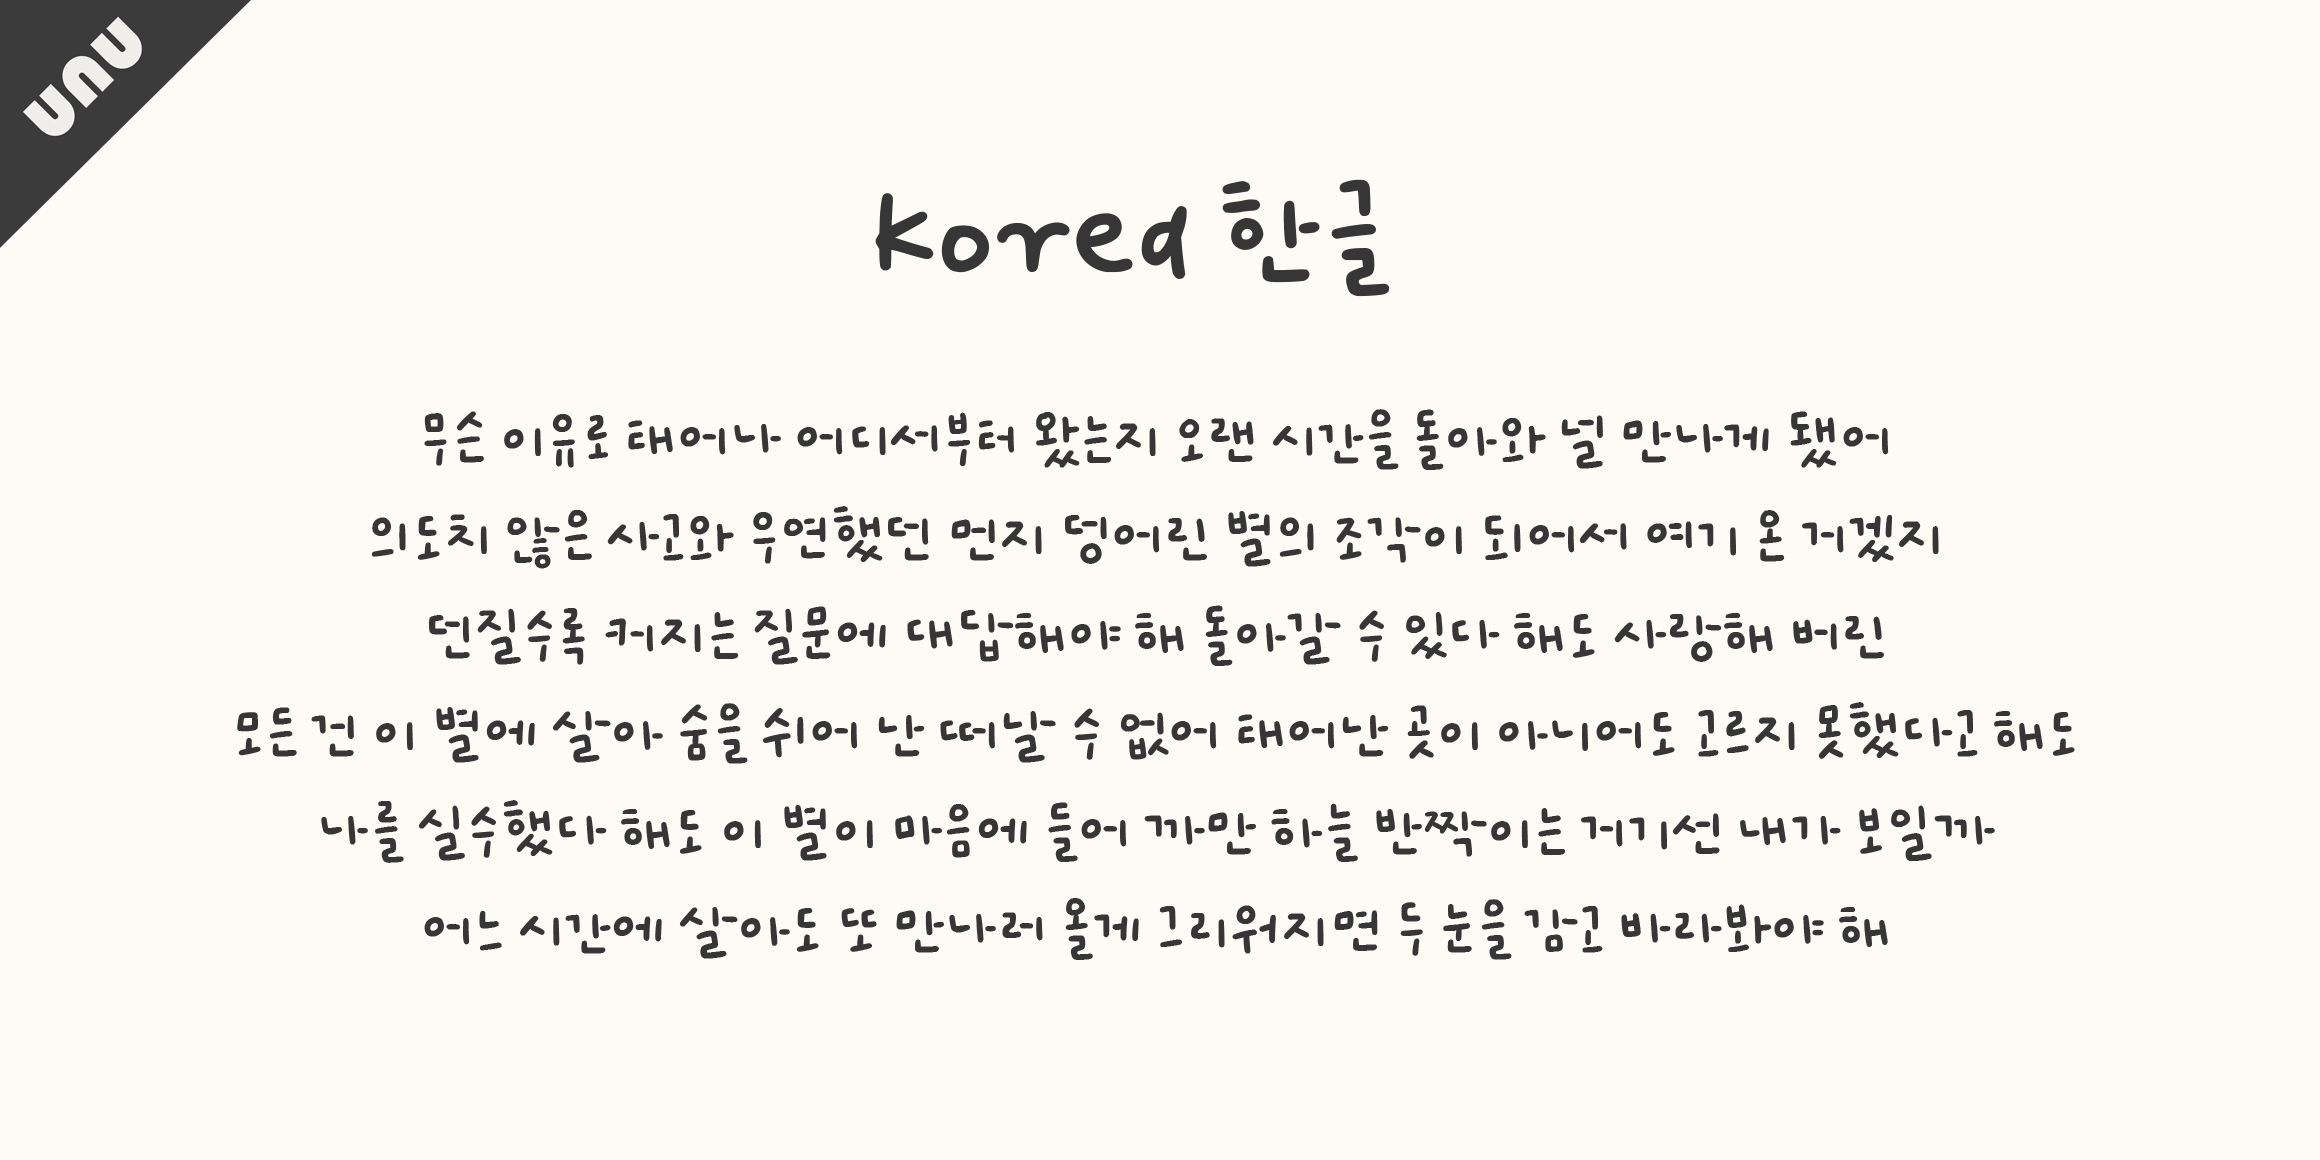 UNU
korea 한글
무슨 이유로 태어나 어디서부터 왔는지 오랜 시간을 돌아와 널 만나게 됐어
의도치 않은 사고와 우연했던 먼지 덩어린 별의 조각이 되어서 여기 온 거겠지
던질수록 커지는 질문에 대답해야 해 돌아갈 수 있다 해도 사랑해 버린
모든 건 이 별에 살아 숨을 쉬어 난 떠날 수 없어 태어난 곳이 아니어도 고르지 못했다고 해도
나를 실수했다 해도 이 별이 마음에 들어 까만 하늘 반짝이는 거기선 내가 보일까
어느 시간에 살아도 또 만나러 올게 그리워지면 두 눈을 감고 바라봐야 해